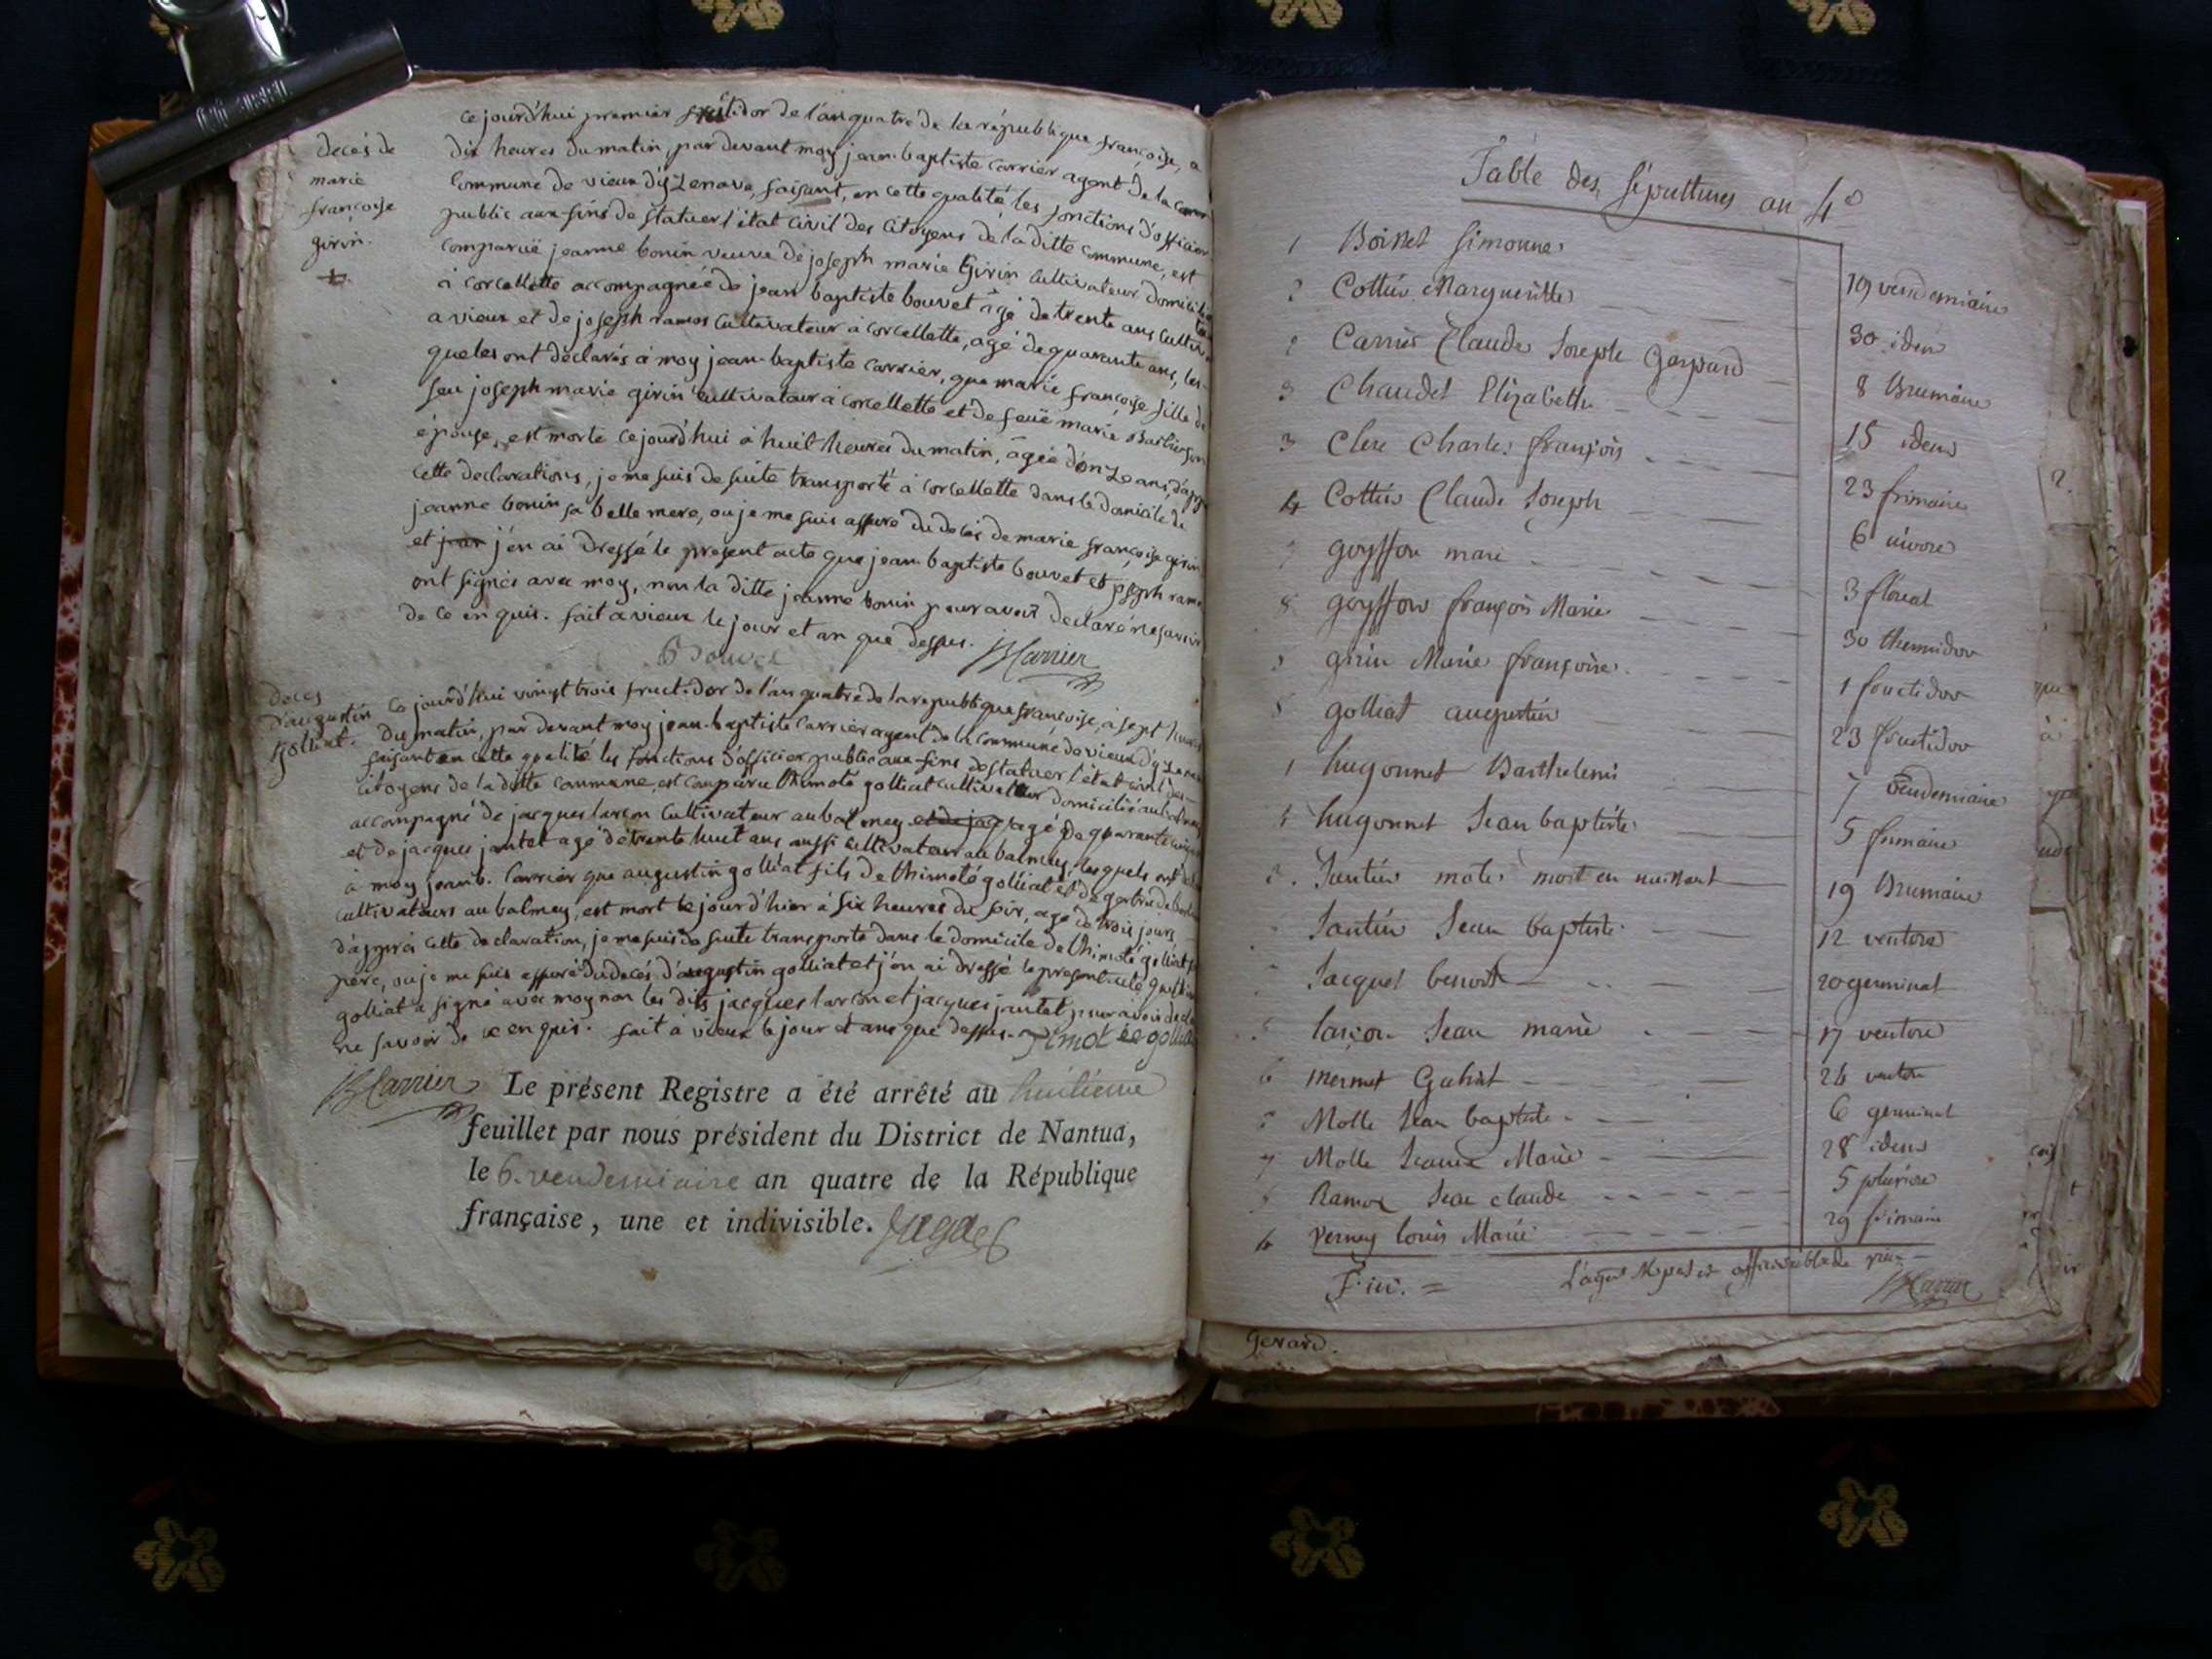 ce jourd'hui premier fructidor de l'an quatre de la république françoise, a
decés de
marie
françoise
girin.
dix heures du matin, par devant moy jean-baptiste carrier agent de la com
commune de vieux d'izenave, faisant, en cette qualité les fonctions d'officier
public aux fins de statuer l'état civil des citoyens de la ditte commune, est
comparuë jeanne bonin veuve de joseph marie Girin cultivateur domicilié
à corcellette accompagnée de jean baptiste bouvet âgé de trente ans cultiv
a vieux et de joseph ramos cultivateur à corcellette, agé de quarante ans, les-
quels ont déclarés à moy jean-baptiste carrier, que marie françoise fille de
feu joseph marie girin cultivateur à corcellette et de feuë marie Barbier son
épouse, est morte ce jourd'hui à huit heures du matin, âgée d'onze ans, d'après
cette declarations, je me suis de suite transporté à corcellette dans le domicile de
jeanne bonin sa belle mere, ou je me suis assuré du decés de marie françoise girin
et j'en ai dressé le present acte que jean-baptiste bouvet et joseph ramo
ont signés avec moy, non la ditte jeanne bonin pour avoir declaré ne savoir
de ce enquis. fait a vieux le jour et an que dessus. JBCarrier
Bouvet
deces
d'augustin
golliat.
Ce jourd'hui vingt trois fructidor de l'an quatre de la republique françoise, à sept heures
du matin, par devant moy jean-baptiste carrier agent de la commune de vieux d'izenave
faisant en cette qualité les fonctions d'officier public aux fins de statuer l'état civil des
citoyens de la ditte commune, est comparu thimoté golliat cultivateur domicilié au balmey
accompagné de jacques larçon cultivateur au balmey et de jacq agé de quarante
et de jacques jantet agé de trente huit ans aussi cultivateur au balmey, lesquels ont
à moy jeanb. Carrier que augustin golliat fils de thimoté golliat et de
cultivateurs au balmey, est mort le jourd'hier à six heures du soir, agé de trois jours
d'après cette declaration, je me suis de suite transporté dans le domicile de thimoté golliat
pere, ou je me suis assuré du decés, d'augustin golliat et j'en ai dressé le present acte que
golliat a signé avec moy non les dits jacques larçon et jacques jantet pour avoir
ne savoir de ce enquis. fait à vieux le jour et ans que dessus. timot ée golliat
JBCarrier
Le présent Registre a été arrêté au huitieme
feuillet par nous président du District de Nantua,
le 6. vendemiaire an quatre de la République
française, une et indivisible.
Table des sépultures an 4e
1 Boisset Simonne 19 vendemiaire
2 Cottin Margueritte 30 idem
2 Carrier Claude Joseph Gaspard 8 Brumaire
3 Chaudet Elizabeth 15 idem
3 Clerc Charles françois 23 frimaire
4 Cottin Claude Joseph 6 nivose
7 goyffon marie 3 floreal
8 goyffon françois Marie 30 thermidor
girin Marie françoise 1 fructidor
8 golliat augustin 23 fructidor
1 hugonnet Barthelemi 7 vendemiaire
hugonnet Jean baptiste 5 frimaire
2. Jantin mort en naissant 19 Brumaire
Jantin Jean baptiste 12 ventose
Jacquet benoit 20 germinal
larçon Jean marie 17 ventose
6 mermet Gabriel 26 ventose
Molle Jean baptiste 6 germinal
7 Molle Jeanne Marie 28 idem
5 Ramos Jean claude 5 pluviose
4 Verney louis Marie 29 frimaire
Fin. =
JBCarrier
Gerard.